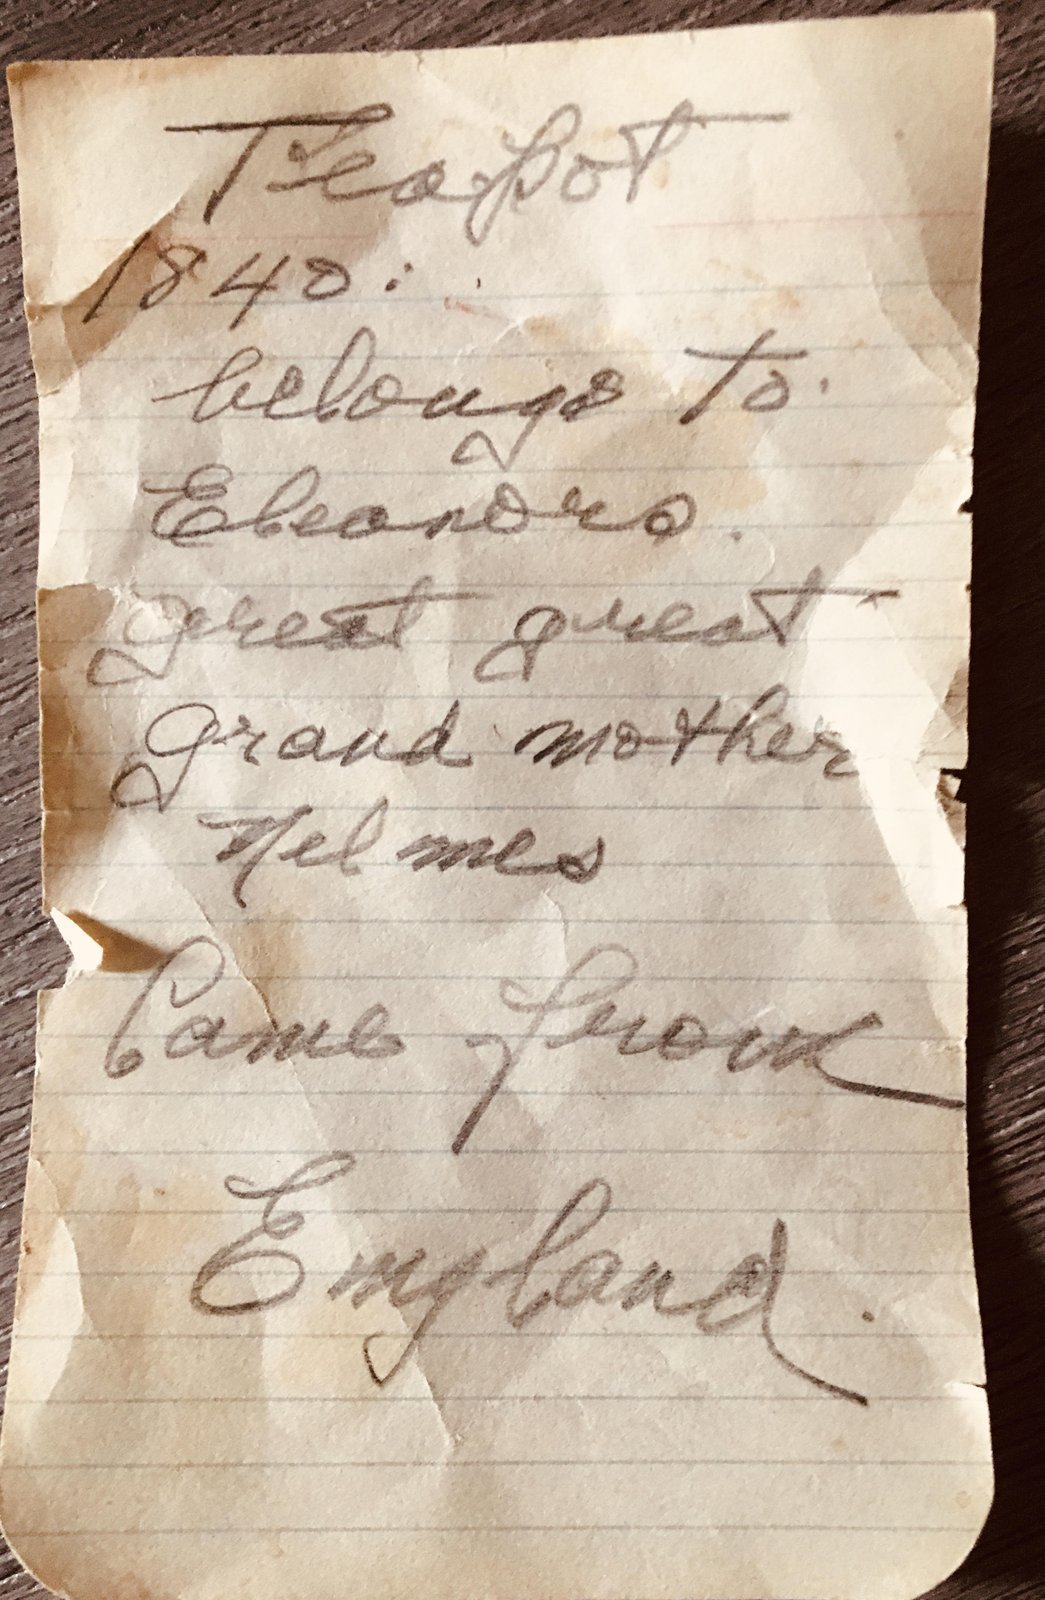 Teapot
1840:
belongs to.
Eleanora.
great great
grand mother
Nelmes
Came from
England.